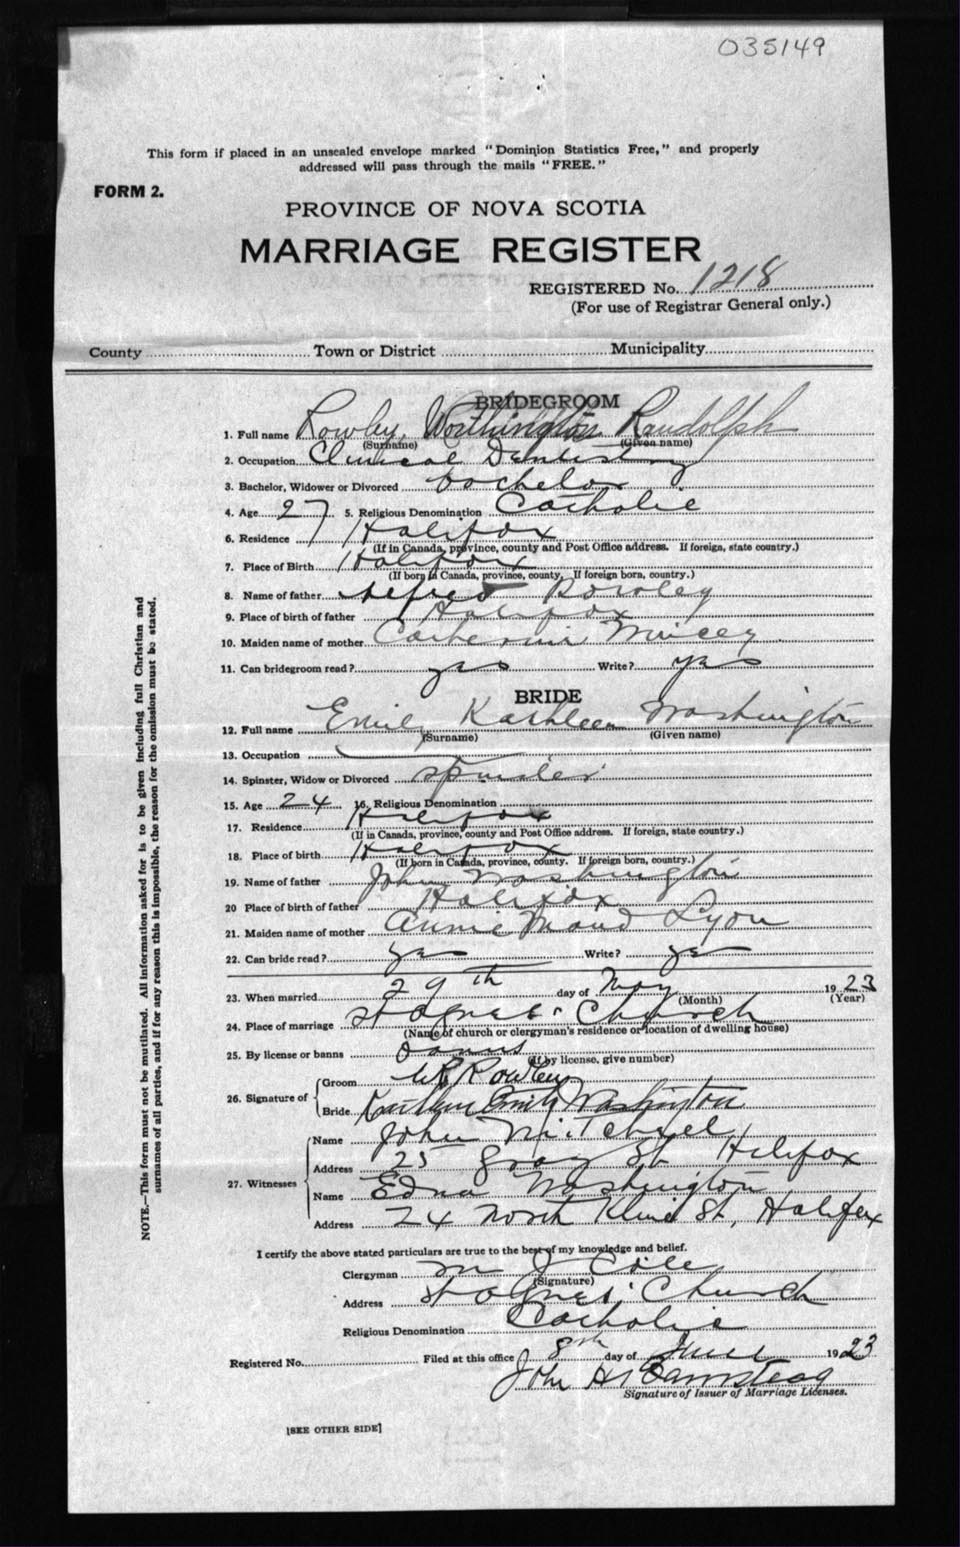 035149
This form if placed in an unsealed envelope marked "Dominion Statistics Free," and properly
addressed will pass through the mails "FREE."
FORM 2.
PROVINCE OF NOVA SCOTIA
MARRIAGE REGISTER
REGISTERED No. 1218
(For use of Registrar General only.)
County Town or District Municipality
BRIDEGROOM
1. Full name Rowley, Worthington Randolph
(Surname) (Given name)
2. Occupation Clinical Dentistry
3. Bachelor, Widower or Divorced bachelor
4. Age 27 5. Religious Denomination Catholic
6. Residence Halifax
(If in Canada, province, county and Post Office address. If foreign, state country.)
7. Place of Birth Halifax
(If born in Canada, province, county, If foreign born, country.)
8. Name of father Alfred Rowley
9. Place of birth of father Halifax
10. Maiden name of mother Catherine
11. Can bridegroom read? yes Write? yes
BRIDE
12. Full name Emily Kathleen Washington
(Surname) (Given name)
13. Occupation
14. Spinster, Widow or Divorced spinster
15. Age 24 16. Religious Denomination
17. Residence Halifax
(If in Canada, province, county and Post Office address. If foreign, state country.)
18. Place of birth Halifax
(If born in Canada, province, county. If foreign born, country.)
19. Name of father John Washington
20 Place of birth of father Halifax
21. Maiden name of mother Annie Maud Lyon
22. Can bride read? yes Write? yes
23. When married 29th day of May 1923
(Month) (Year)
24. Place of marriage St Agnes' Church
(Name of church or clergyman's residence or location of dwelling house)
25. By license or banns banns
(If by license, give number)
26. Signature of
Groom WR Rowley
Bride Kathleen Emily Washington
27. Witnesses
Name John Mitchell
Address 25 Gray St Halifax
Name Edna Washington
Address 24 North St, Halifax
I certify the above stated particulars are true to the best of my knowledge and belief.
Clergyman M J Cole
(Signature)
Address St Agnes' Church
Religious Denomination Catholic
Registered No. Filed at this office 8th day of June 1923
John H
Signature of Issuer of Marriage Licenses.
[SEE OTHER SIDE]
NOTE.—This form must not be mutilated. All information asked for is to be given including full Christian and
surnames of all parties, and if for any reason this is impossible, the reason for the omission must be stated.